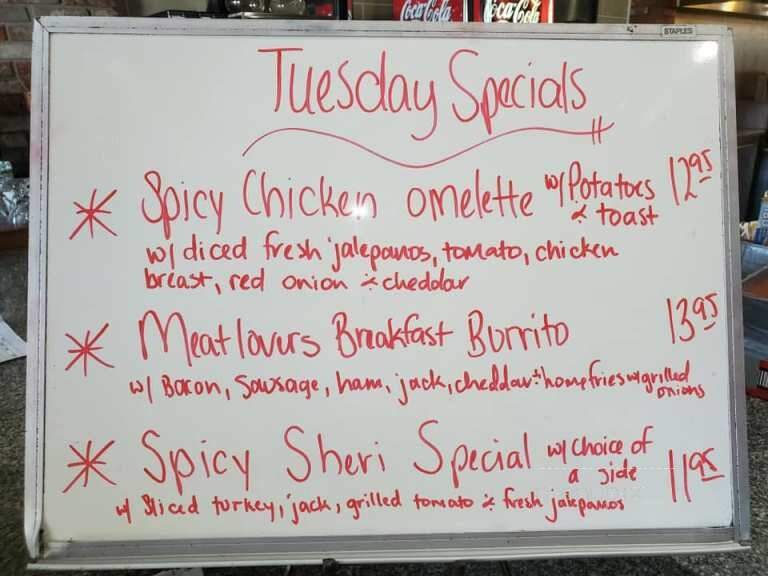 Coca-Cola Coca-Cola
STAPLES
Tuesday Specials
* Spicy Chicken omelette w/ Potatoes & toast 12.95
w/ diced fresh jalepanos, tomato, chicken
breast, red onion & cheddar
* Meatlovers Breakfast Burrito 13.95
w/ Bacon, Sausage, ham, jack, cheddar & homefries w/ grilled onions
* Spicy Sheri Special w/ Choice of a side 11.95
w/ Sliced turkey, jack, grilled tomato & fresh jalepanos